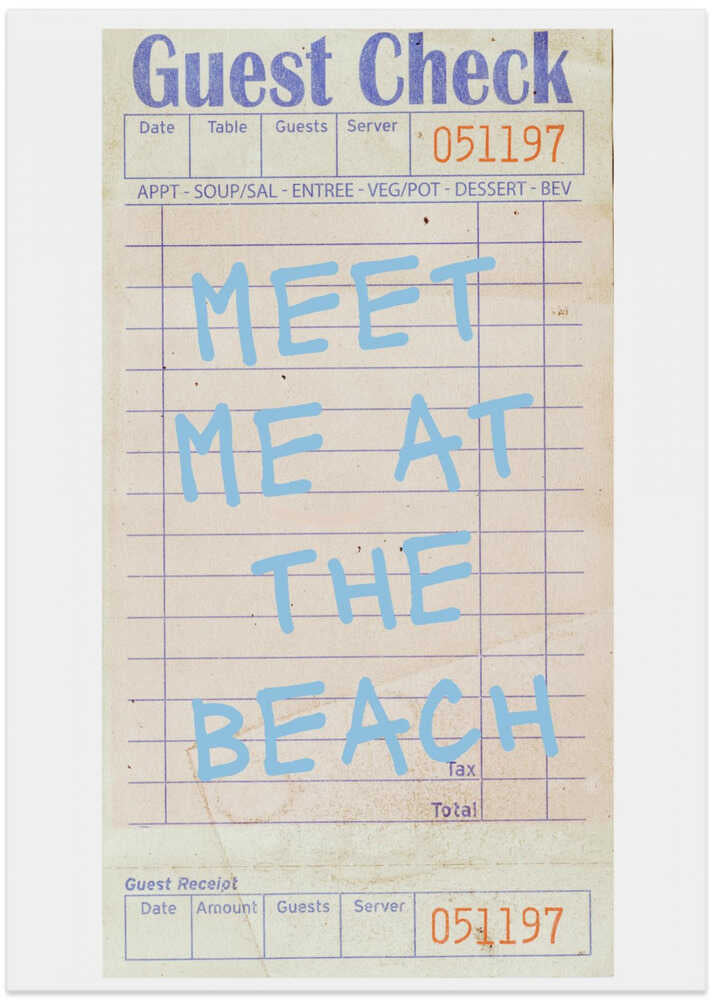 Guest Check
Date Table Guests Server 051197
APPT - SOUP/SAL - ENTREE - VEG/POT - DESSERT - BEV
MEET
ME AT
THE
BEACH
Tax
Total
Guest Receipt
Date Amount Guests Server 051197